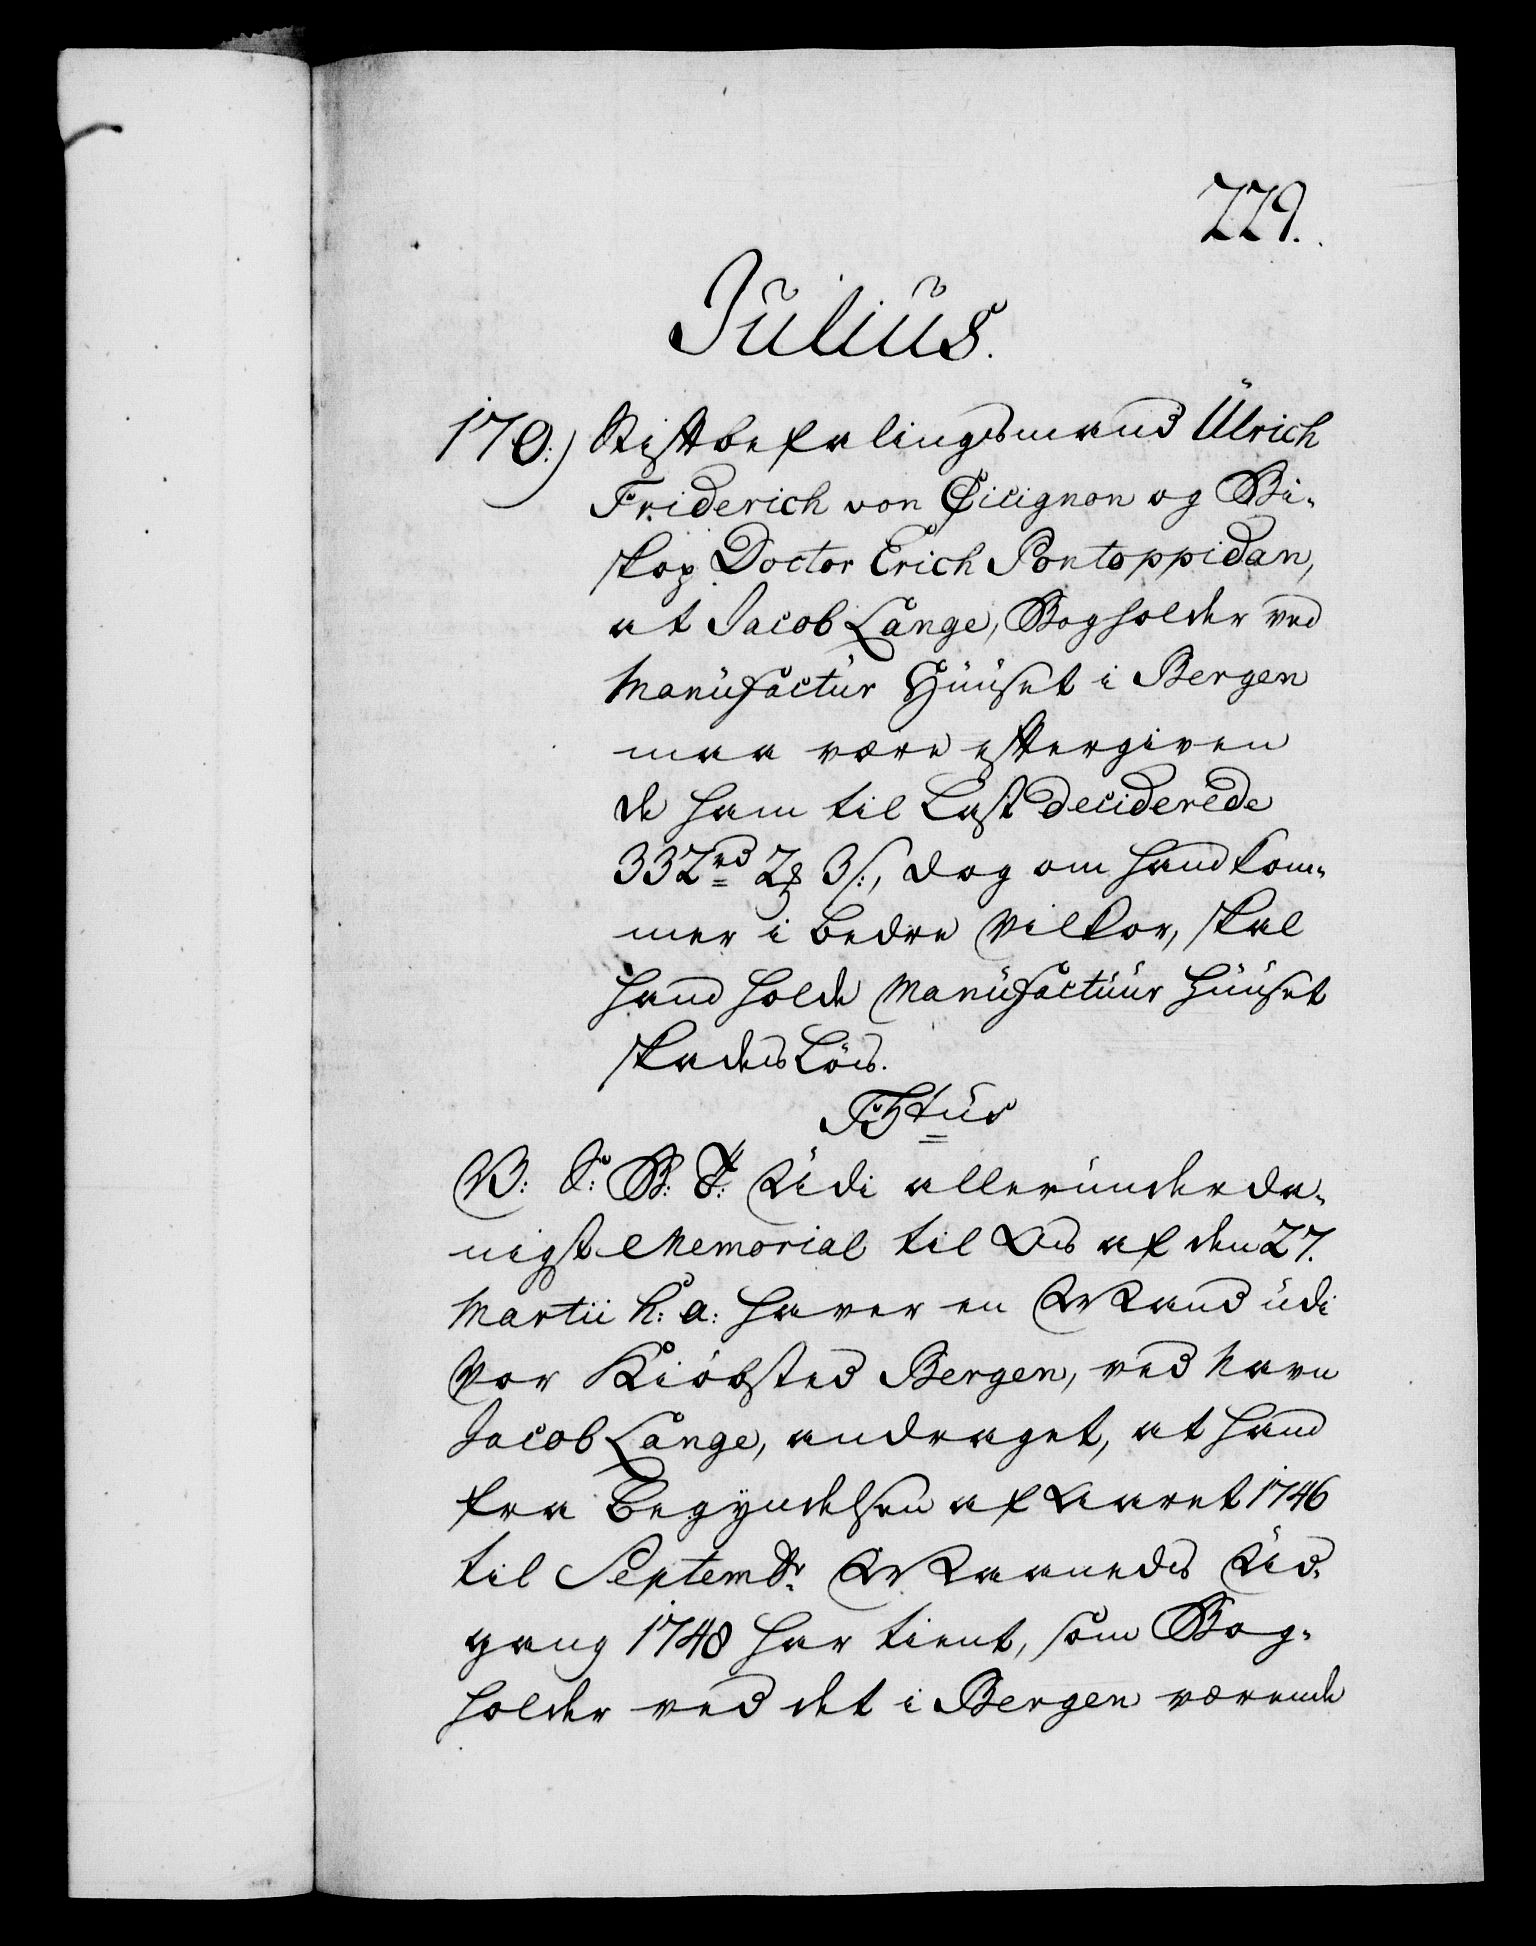 229.
Julius.
170.) Stiftbefalingsmand Ulrich
Friderich von Cicignon og Bi-
skop Doctor Erich Pontoppidan,
at Jacob Lange, Bogholder ved
Manufactur Huuset i Bergen
maa være eftergiven
de ham til Last deciderede
332 rd 2 ß 3 /:, dog om hand kom-
mer i bedre Vilkor, skal
hand holde Manufactuur Huuset
skadesløs.
F 5tus
V. S. B. T. Udi allerunderda-
nigst Memorial til Os af den 27.
Martii h: a: haver en Mand udi
Vor Kiøbsted Bergen, ved Navn
Jacob Lange, andraget, at hand
fra Begyndelsen af Aaret 1746
til Septembr. Maaneds Ud-
gang 1748 har tient, som Bog-
holder ved det i Bergen værende